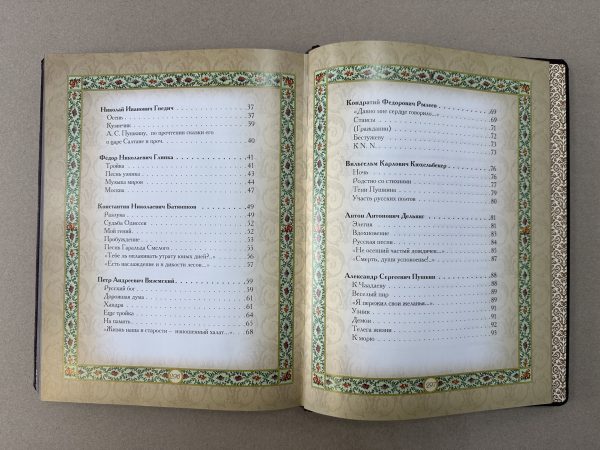 Николай Иванович Гнедич 37
Осень 37
Кузнечик 39
А. С. Пушкину, по прочтении сказки его
о царе Салтане и проч. 40
Федор Николаевич Глинка 41
Тройка 41
Песнь узника 43
Музыка миров 44
Москва 47
Константин Николаевич Батюшков 49
Разлука 49
Судьба Одиссея 52
Мой гений 52
Пробуждение 53
Песнь Гаральда Смелого 55
«Тебе ль оплакивать утрату юных дней?..» 56
«Есть наслаждение и в дикости лесов...» 57
Петр Андреевич Вяземский 59
Русский бог 59
Дорожная дума 61
Хандра 61
Еще тройка 64
На память 65
«Жизнь наша в старости – изношенный халат...» 68
Кондратий Федорович Рылеев
«Давно мне сердце говорило...» 69
Стансы 69
(Гражданин) 71
Бестужеву 73
К N. N. 73
Вильгельм Карлович Кюхельбекер 76
Ночь 76
Родство со стихиями 77
Тени Пушкина 79
Участь русских поэтов 80
Антон Антонович Дельвиг 81
Элегия 81
Вдохновение 83
Русская песня 84
«Не осенний частый дождичек...» 85
«Смерть, души успокоенье!..» 87
Александр Сергеевич Пушкин 88
К Чаадаеву 88
Веселый пир 89
«Я пережил свои желанья...» 91
Узник 91
Демон 91
Телега жизни 92
К морю 93